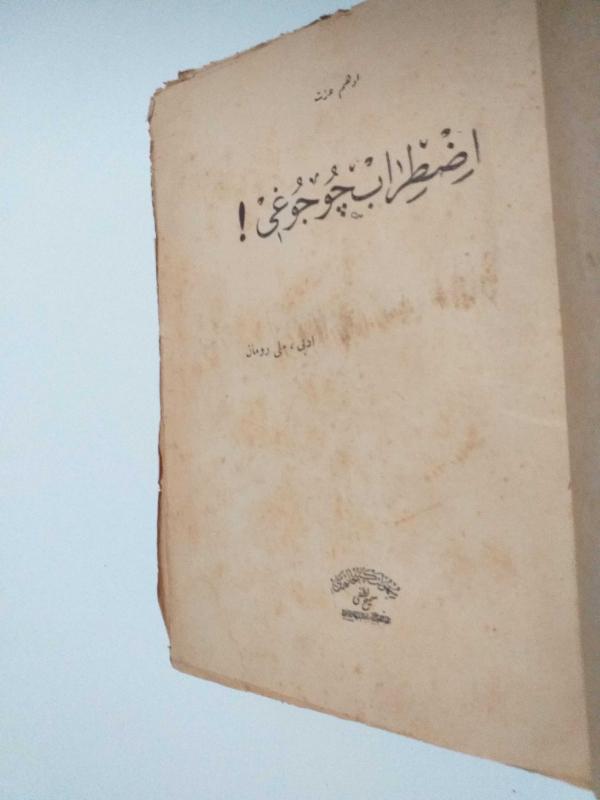 ادهم عزت
اِضْطِرَابْ چُوجُوغِیْ !
ادبی ، ملی رومان